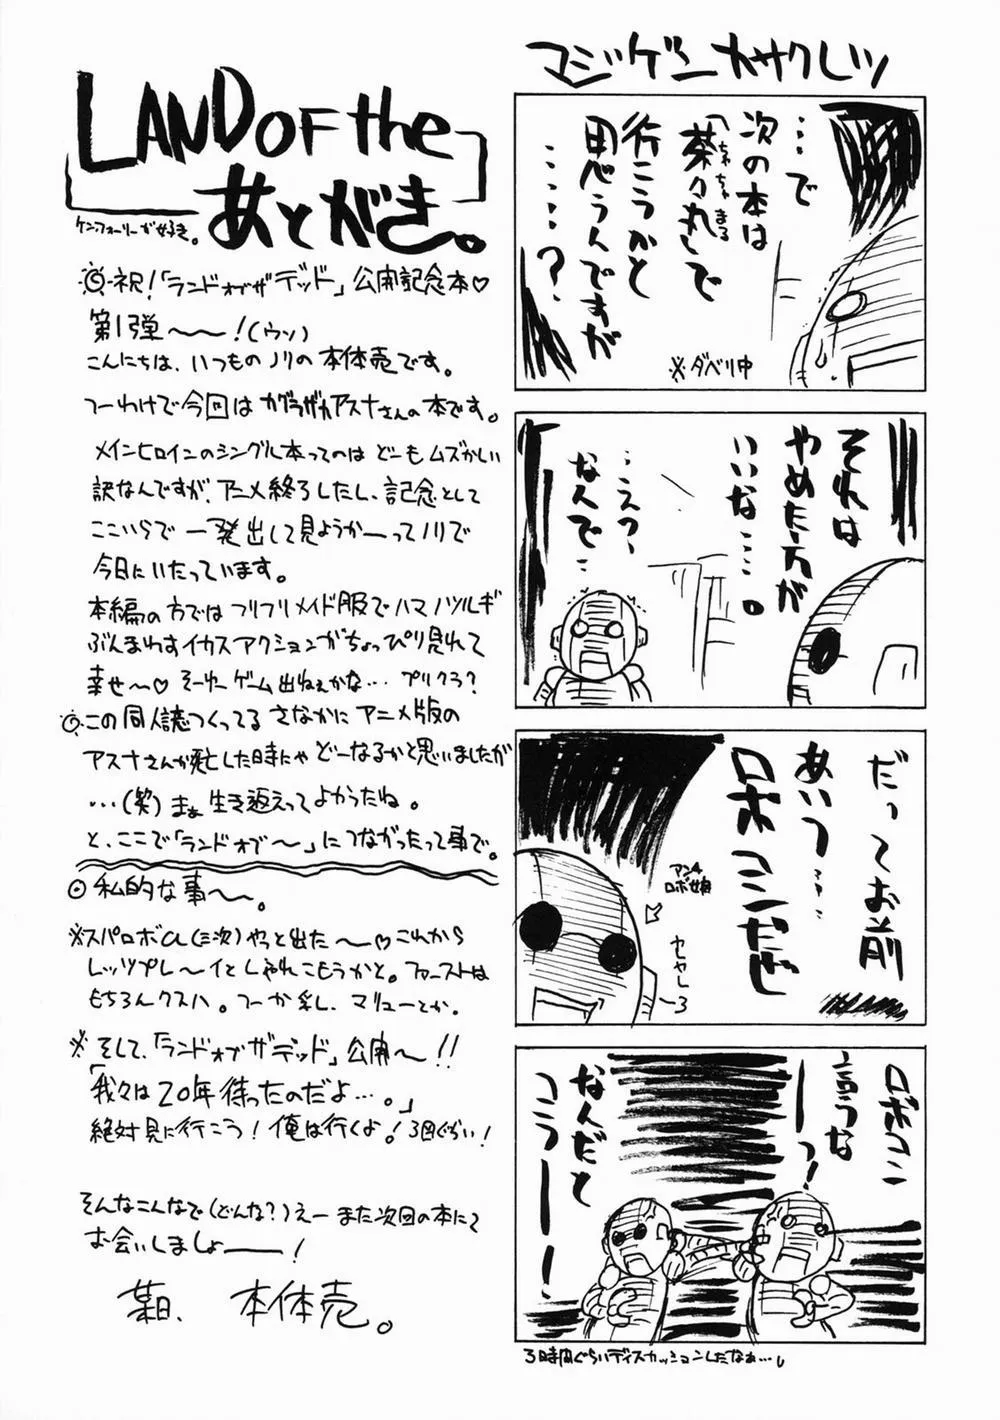 LAND OF the
あとがき。
ケン・フォーリーが好き。
◎祝!「ランドオブザデッド」公開記念本♡
第1弾〜〜!(ウソ)
こんにちは、いつものノリの本体売です。
つーわけで今回はカグラザカアスナさんの本です。
メインヒロインのシングル本ってのはどーもムズかしい
訳なんですが、アニメ終了したし、記念として
ここいらで一発出して見ようかーってノリで
今日にいたっています。
本編の方ではフリフリメイド服でハマノツルギ
ぶんまわすイカスアクションがちょっぴり見れて
幸せ〜♡ そーゆーゲーム出ねぇかな… プリクラ?
◎この同人誌つくってるさなかにアニメ版の
アスナさんが死亡した時にゃどーなるかと思いましたが
…(笑)まぁ生き返えってよかったね。
と、ここで「ランドオブ〜」につながったって事で。
◎私的な事〜。
※スパロボα(三次)やっと出た〜♡これから
レッツプレ〜イとしゃれこもうかと。ファーストは
もちろんクスハ。つーか乳し、マリューとか。
※そして、「ランドオブザデッド」公開〜!!
「我々は20年待ったのだよ…。」
絶対見に行こう!俺は行くよ!3回ぐらい!
そんなこんなで(どんな?)えーまた次回の本にて
お会いしましょ——!
某日、 本体売。
マジッゲーンカサクレツ
…で
次の本は
「茶々丸」で
ちゃちゃまる
行こうかと
思うんですが
……?
※ダベリ中
それは
やめた方が
いいな…。
…えっ、
なんで…
だってお前
あいつ…
ロボコンだぜ
アンチ
ロボ娘
ヒャヒャし〜3
ロボコン
言うな
ーっ!
なんだと
コラーー!
3時間ぐらいディスカッションしたなぁ…。